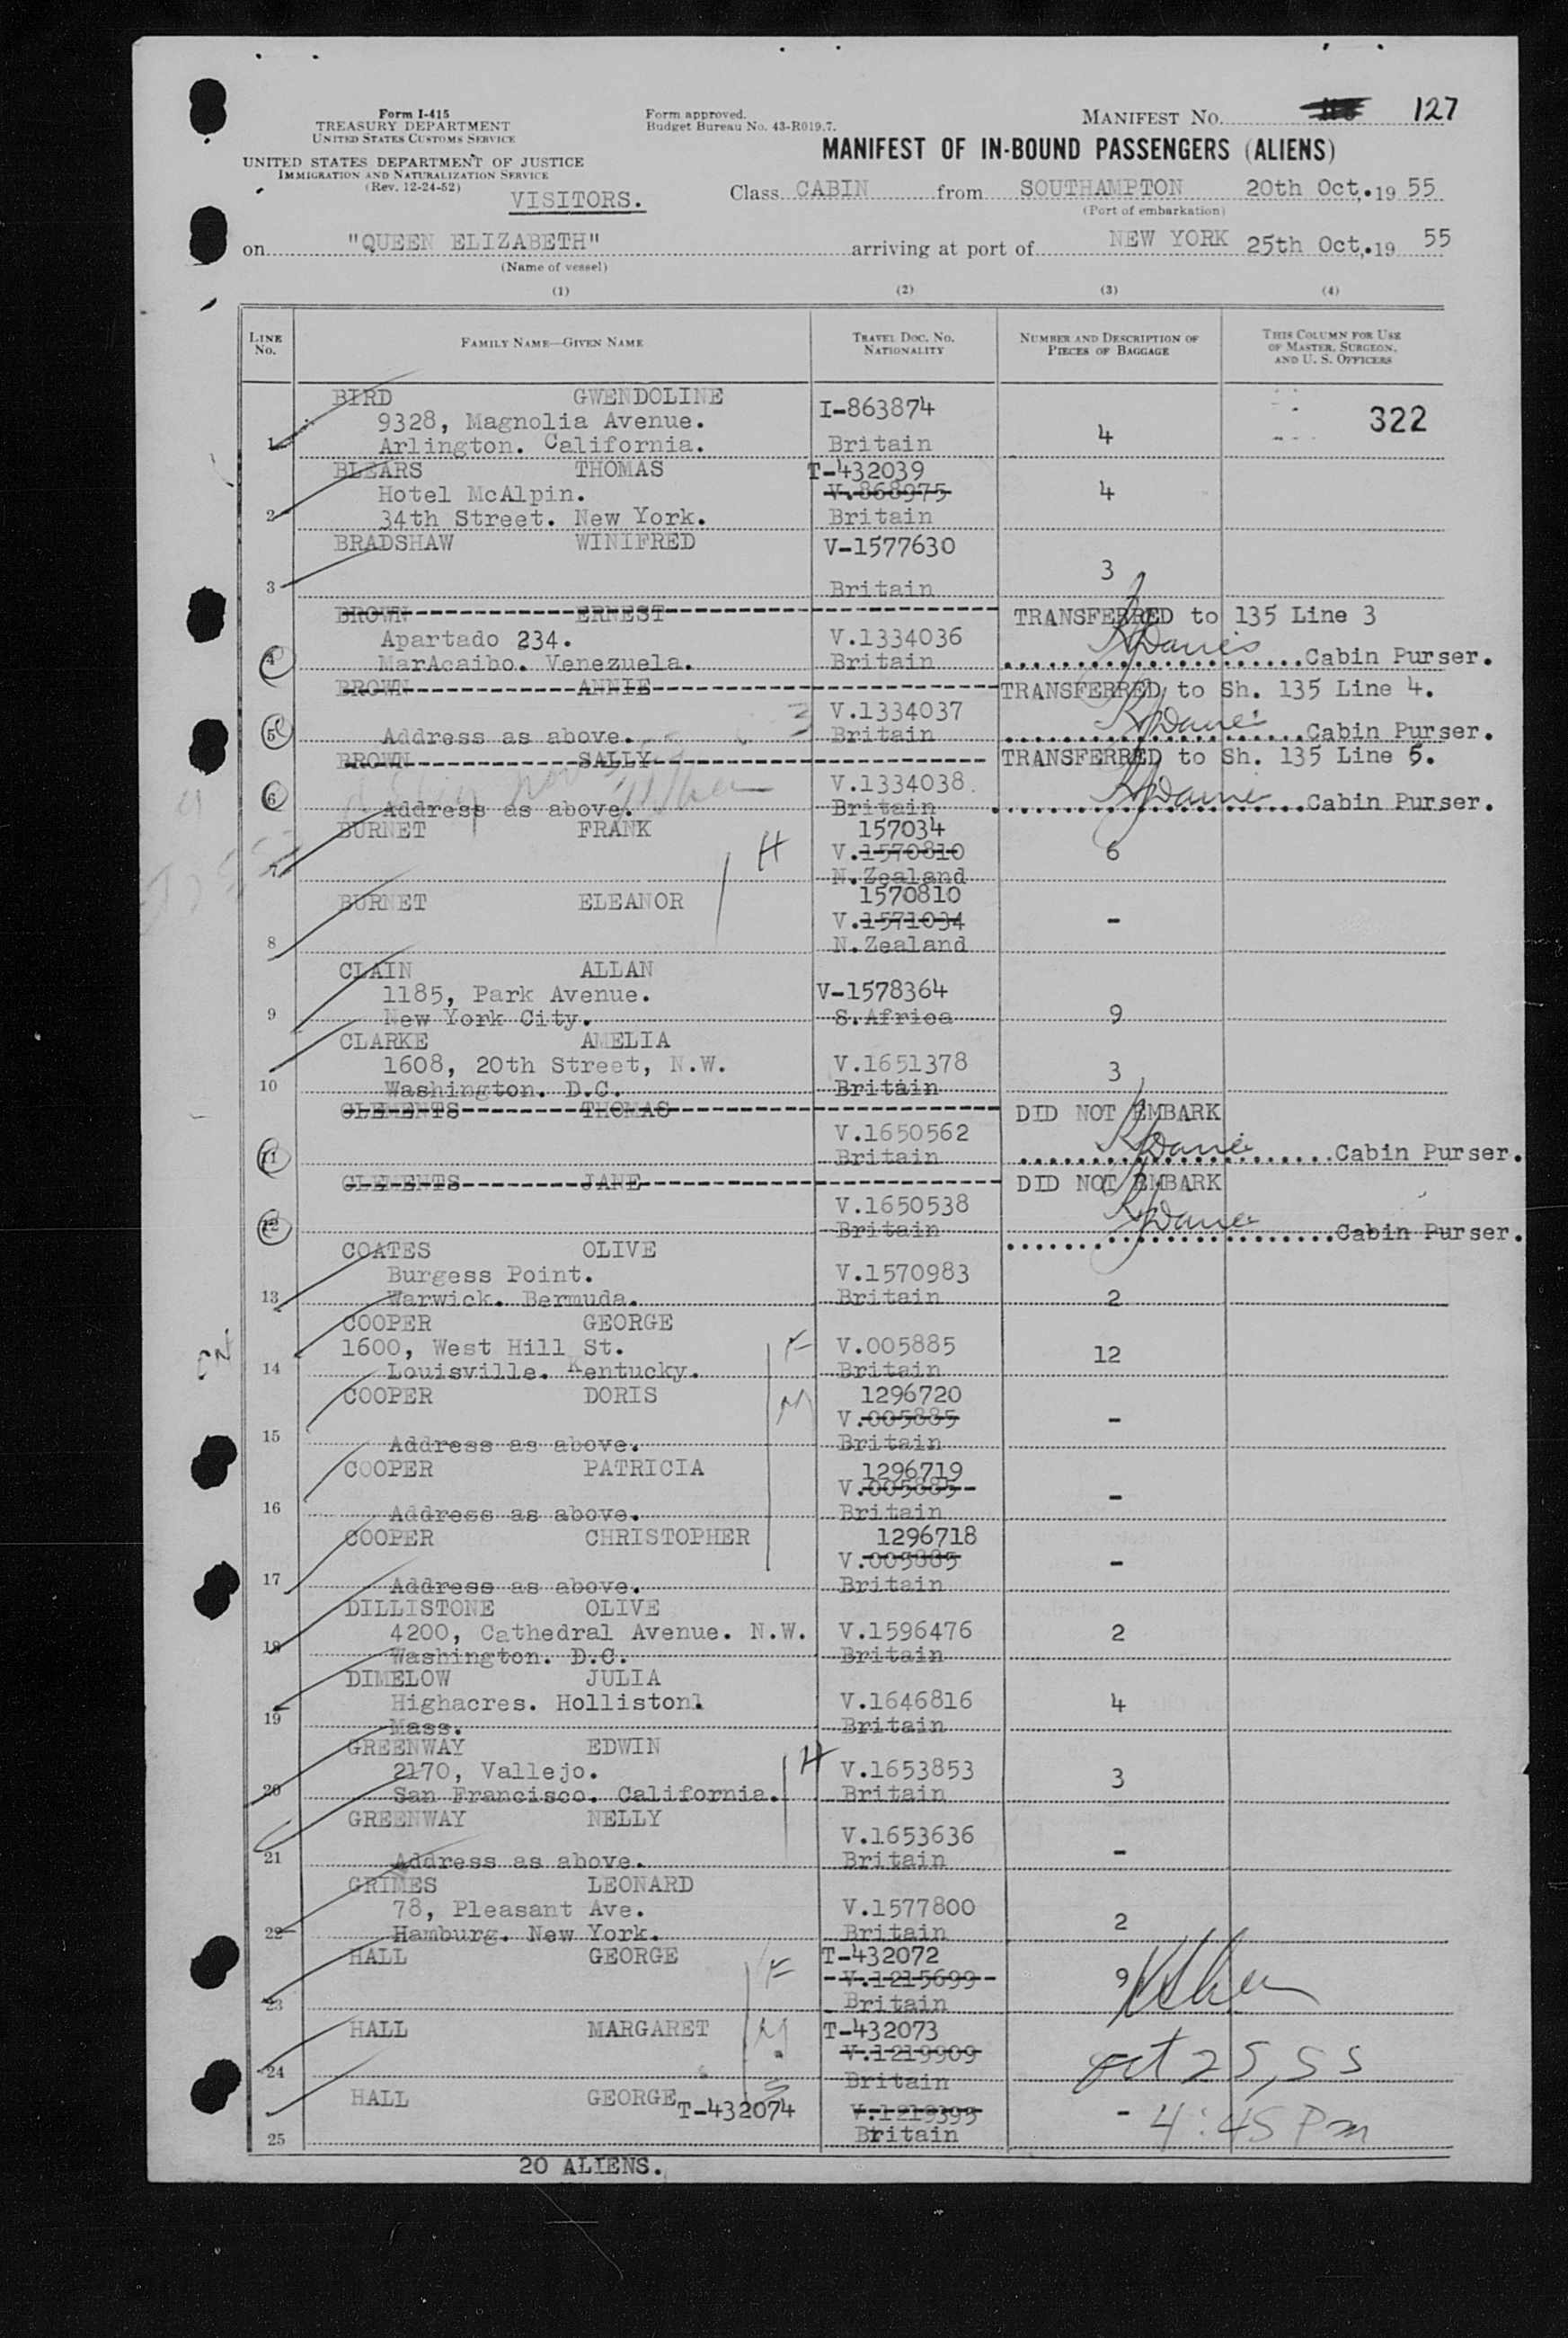 Form I-415
TREASURY DEPARTMENT
UNITED STATES CUSTOMS SERVICE
UNITED STATES DEPARTMENT OF JUSTICE
IMMIGRATION AND NATURALIZATION SERVICE
(Rev. 12-24-52)
VISITORS.
Form approved.
Budget Bureau No. 43-R019.7.
MANIFEST NO. 127
MANIFEST OF IN-BOUND PASSENGERS (ALIENS)
Class CABIN from SOUTHAMPTON 20th Oct,. 19 55
(Port of embarkation)
on "QUEEN ELIZABETH" arriving at port of NEW YORK 25th Oct,. 19 55
(Name of vessel)
(1) (2) (3) (4)
LINE NO. FAMILY NAME—GIVEN NAME TRAVEL DOC. NO. NATIONALITY NUMBER AND DESCRIPTION OF PIECES OF BAGGAGE THIS COLUMN FOR USE OF MASTER, SURGEON, AND U. S. OFFICERS
BIRD GWENDOLINE I-863874 322
9328, Magnolia Avenue.
1 Arlington. California. Britain 4
BLEARS THOMAS T-432039
Hotel McAlpin. V.868975 4
2 34th Street. New York. Britain
BRADSHAW WINIFRED V-1577630
3 Britain 3
BROWN ERNEST TRANSFERRED to 135 Line 3
Apartado 234. V.1334036
4 MarAcaibo. Venezuela. Britain Cabin Purser.
BROWN ANNIE TRANSFERRED to Sh. 135 Line 4.
V.1334037
5 Address as above. Britain Cabin Purser.
BROWN SALLY TRANSFERRED to Sh. 135 Line 5.
V.1334038.
6 Address as above. Britain Cabin Purser.
BURNET FRANK 157034
7 H V.1570810 6
N.Zealand
BURNET ELEANOR 1570810
V.1571034 -
8 N.Zealand
CLAIN ALLAN
1185, Park Avenue. V-1578364
9 New York City. S.Africa 9
CLARKE AMELIA
1608, 20th Street, N.W. V.1651378 3
10 Washington. D.C. Britain
CLEMENTS THOMAS DID NOT EMBARK
V.1650562
11 Britain Cabin Purser.
CLEMENTS JANE DID NOT EMBARK
V.1650538
12 Britain Cabin Purser.
COATES OLIVE
Burgess Point. V.1570983
13 Warwick. Bermuda. Britain 2
COOPER GEORGE
1600, West Hill St. F V.005885 12
14 Louisville. Kentucky. Britain
COOPER DORIS 1296720
M V.005885 -
15 Address as above. Britain
COOPER PATRICIA 1296719
V.005885 -
16 Address as above. Britain
COOPER CHRISTOPHER 1296718
V.005885 -
17 Address as above. Britain
DILLISTONE OLIVE
4200, Cathedral Avenue. N.W. V.1596476 2
18 Washington. D.C. Britain
DIMELOW JULIA
Highacres. Holliston. V.1646816 4
19 Mass. Britain
GREENWAY EDWIN H
2170, Vallejo. V.1653853 3
20 San Francisco. California. Britain
GREENWAY NELLY
V.1653636 -
21 Address as above. Britain
GRIMES LEONARD
78, Pleasant Ave. V.1577800 2
22 Hamburg. New York. Britain
HALL GEORGE T-432072
F V.1215699 9
23 Britain
HALL MARGARET M T-432073
V.1219909
24 Britain Oct 25, 55
HALL GEORGE T-432074 V.1219395 - 4:45 Pm
25 Britain
20 ALIENS.